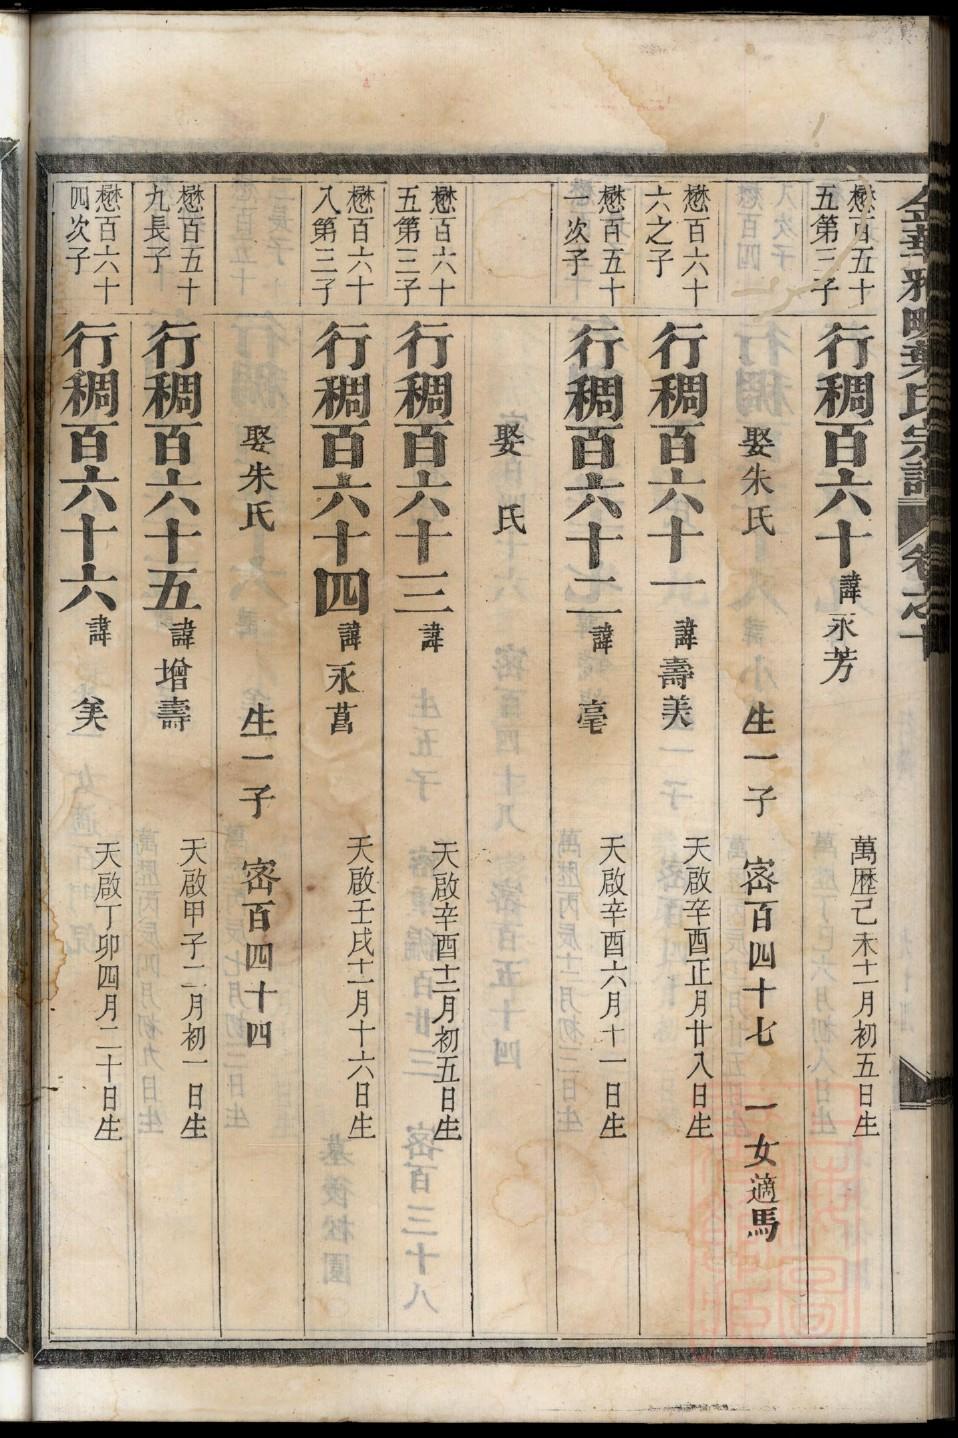 金華雅畈葉氏宗譜 卷之十
懋百五十五第三子
行稠百六十 諱永芳 萬歷己未十一月初五日生
娶朱氏 生一子 密百四十七 一女適馬
懋百六十六之子
行稠百六十一 諱壽美 天啟辛酉正月廿八日生
懋百五十一次子
行稠百六十二 諱毫 天啟辛酉六月十一日生
娶 氏
懋百六十五第三子
行稠百六十三 諱 天啟辛酉十二月初五日生
懋百六十八第三子
行稠百六十四 諱永菖 天啟壬戌十一月十六日生
娶朱氏 生一子 密百四十四
懋百五十九長子
行稠百六十五 諱增壽 天啟甲子二月初一日生
懋百六十四次子
行稠百六十六 諱 天啟丁卯四月二十日生